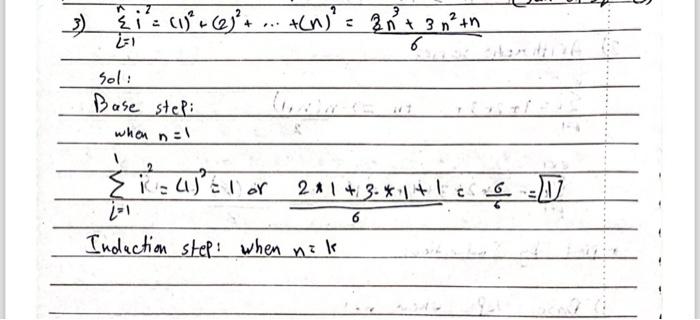 3) n∑i=1 i² = (1)² + (2)² + ... + (n)² = 2n³ + 3n² + n / 6
Sol:
Base step:
when n=1
1∑i=1 i² = (1)² = 1 or 2*1 + 3*1 + 1 / 6 = 6/6 = 1
Induction step: when n = k